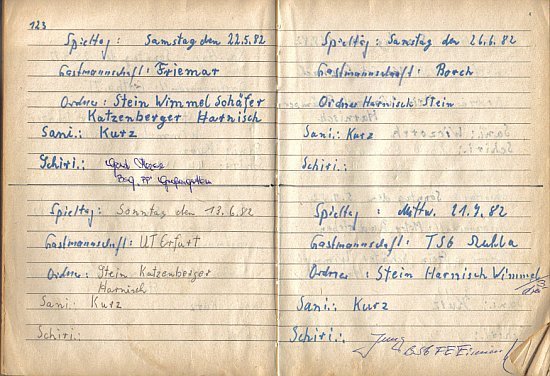 123
Spieltag: Samstag den 22.5.82
Gastmannschaft: Friemar
Ordner: Stein Wimmel Schäfer
Katzenberger Harnisch
Sani: Kurz
Schiri:
Spieltag: Sonntag den 13.6.82
Gastmannschaft: UT Erfurt
Ordner: Stein Katzenberger
Harnisch
Sani: Kurz
Schiri:
Spieltag: Samstag den 26.6.82
Gastmannschaft:
Ordner Harnisch Stein
Sani.: Kurz
Schiri.:
Spieltag: Mittw. 21.7.82
Gastmannschaft: TSG Ruhla
Ordner: Stein Harnisch Wimmel
Sani.: Kurz
Schiri.: